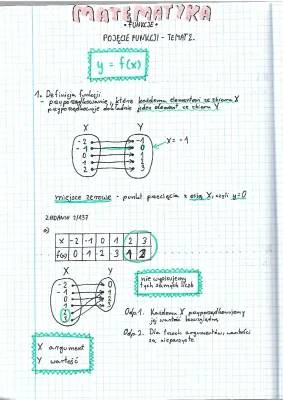 MATEMATYKA
• FUNKCJE •
POJĘCIE FUNKCJI - TEMAT 2.
y = f(x)
1. Definicja funkcji
- przyporządkowanie, które każdemu elementowi ze zbioru X
przyporządkowuje dokładnie jeden element ze zbioru Y
X Y
-2 -1
-1 0
0 1
1 2
2 3
x = -1
miejsce zerowe - punkt przecięcia z osią X, czyli y=0
ZADANIE 2/137
a)
X -2 -1 0 1 2 3
f(x) 0 1 2 3 1 2
X Y
-2 0
-1 1
0 2
1 3
2
3
nie wypisujemy
tych samych liczb
X argument
Y wartość
Odp 1. Każdemu X przyporządkowujemy
jej wartość bezwzględną.
Odp 2. Dla trzech argumentów, wartości
są nieparzyste.